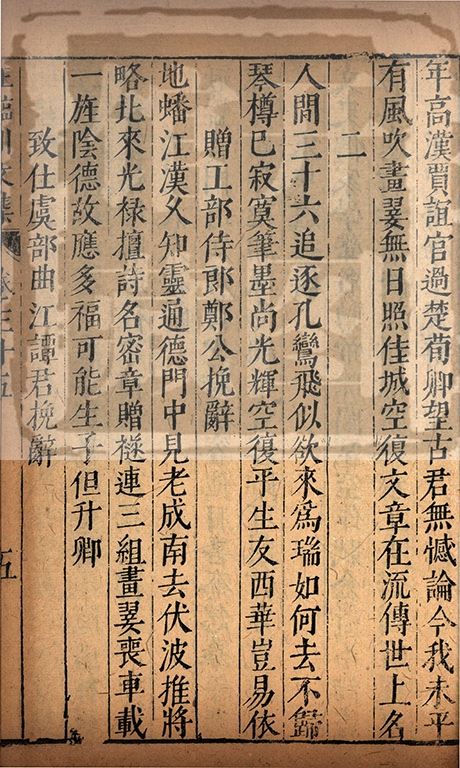 年高漢賈誼官過楚荀卿望古君無憾論今我未平
有風吹畫翣無日照佳城空復文章在流傳世上名
二
人間三十六追逐孔鸞飛似欲來爲瑞如何去不歸
琴樽已寂寞筆墨尚光輝空復平生友西華豈易依
贈工部侍郎鄭公挽辭
地蟠江漢久知靈通德門中見老成南去伏波推將
略北來光祿擅詩名密章贈襚連三組畫翣喪車載
一旌陰德故應多福可能生子但升卿
致仕虞部曲江譚君挽辭
臨川文集 卷三十五 五